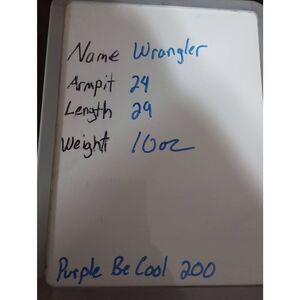 Name Wrangler
Armpit 24
Length 29
Weight 10oz
Purple Be Cool 200